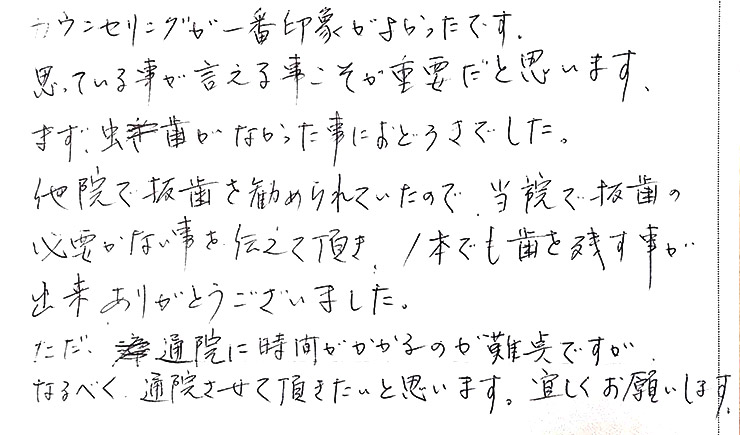 カウンセリングが一番印象がよかったです.
思っている事が言える事こそが重要だと思います、
まず、虫歯がなかった事におどろきでした。
他院で抜歯を勧められていたので、当院で抜歯の
必要がない事を伝えて頂き、1本でも歯を残す事が
出来ありがとうございました。
ただ、通院に時間がかかるのが難点ですが、
なるべく、通院させて頂きたいと思います。宜しくお願いします。